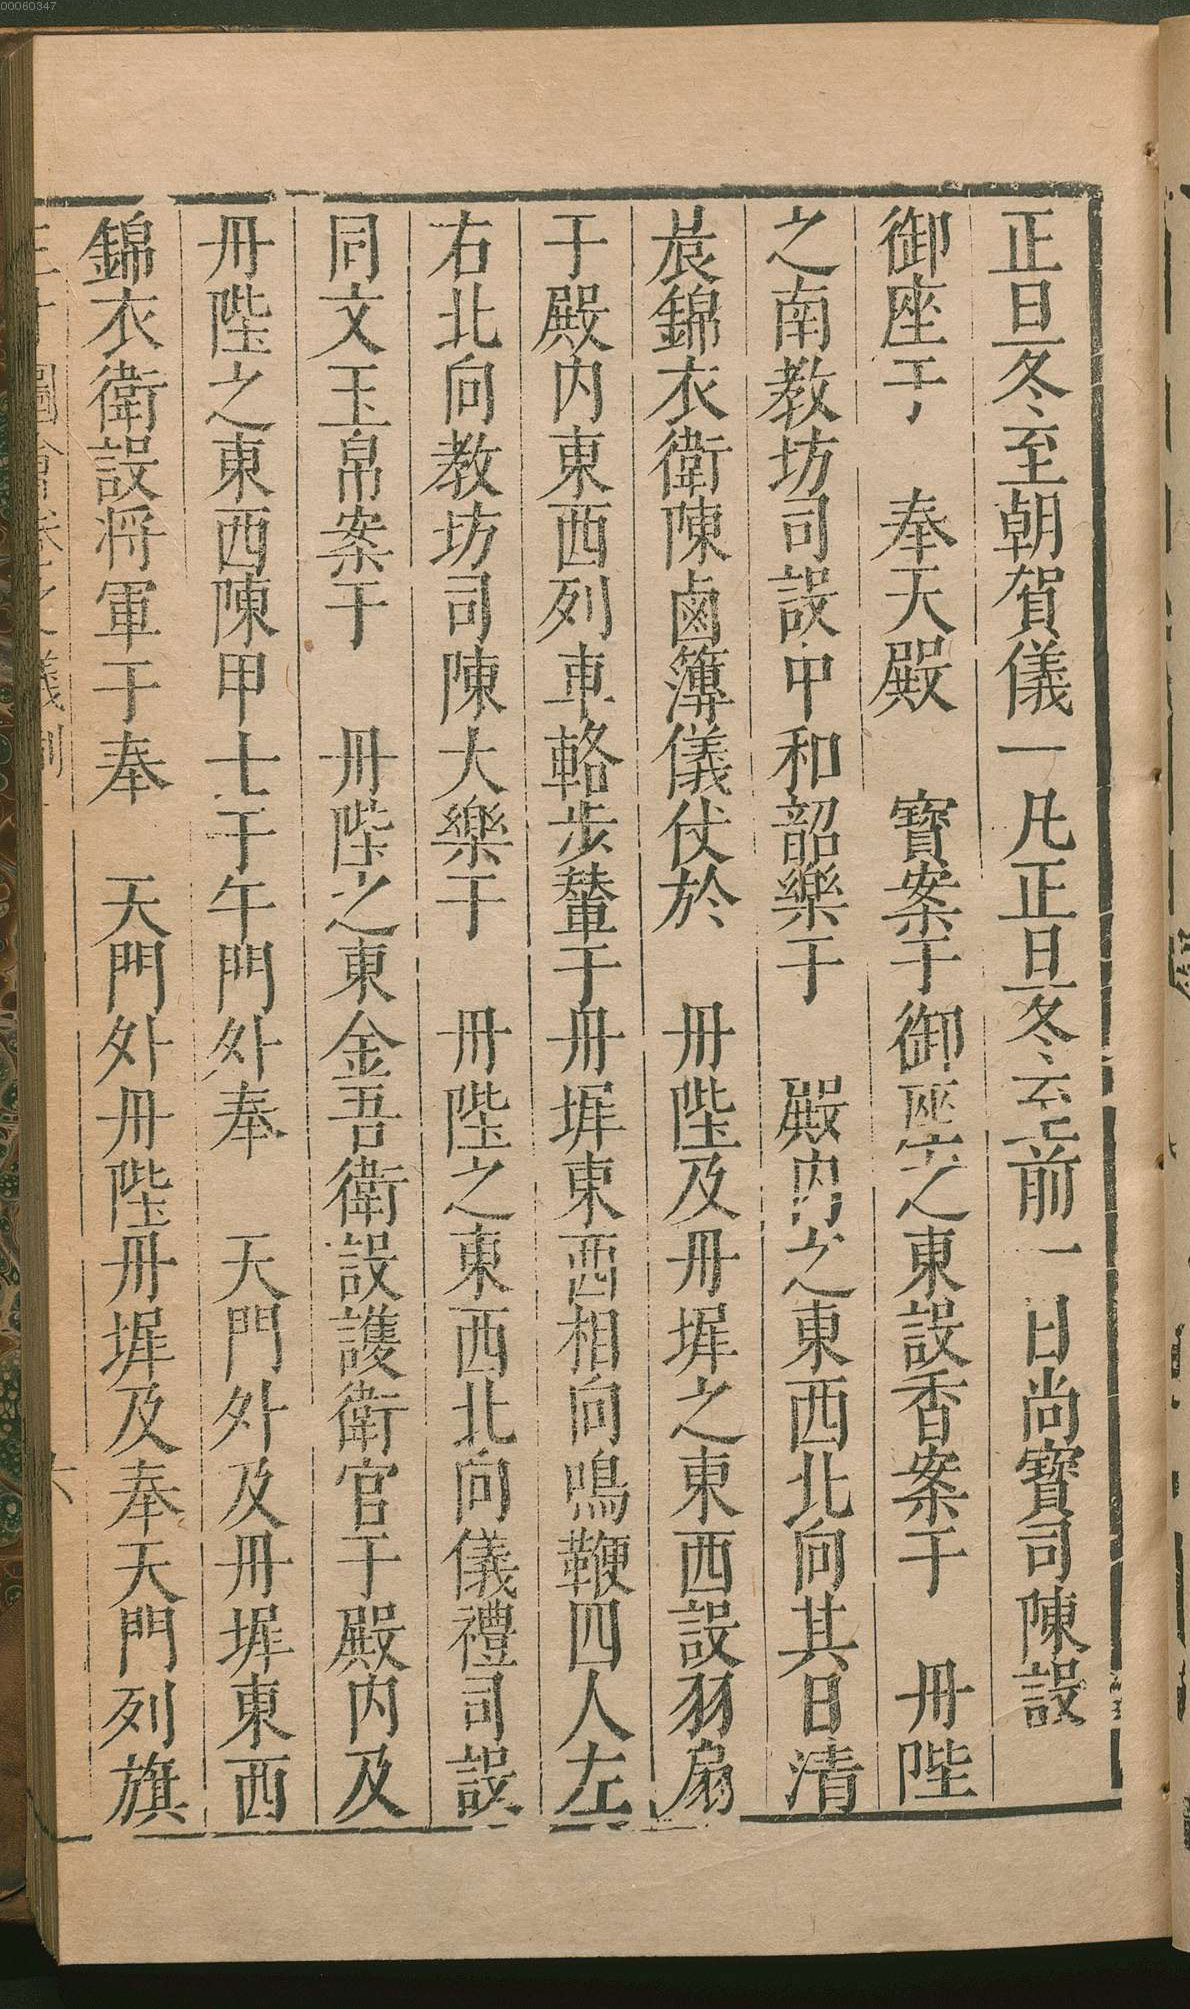 00060347
正旦冬至朝賀儀一凡正旦冬至前一日尚寳司陳設
御座于 奉天殿 寳案于御座之東設香案于 丹陛
之南教坊司設中和韶樂于 殿内之東西北向其日清
晨錦衣衛陳鹵簿儀仗於 丹陛及丹墀之東西設羽扇
于殿内東西列車輅步輦于丹墀東西相向鳴鞭四人左
右北向教坊司陳大樂于 丹陛之東西北向儀禮司設
同文玉帛案于 丹陛之東金吾衛設護衛官于殿内及
丹陛之東西陳甲士于午門外奉 天門外及丹墀東西
錦衣衛設将軍于奉 天門外丹陛丹墀及奉天門列旗
三才圖會 卷之 儀制 六